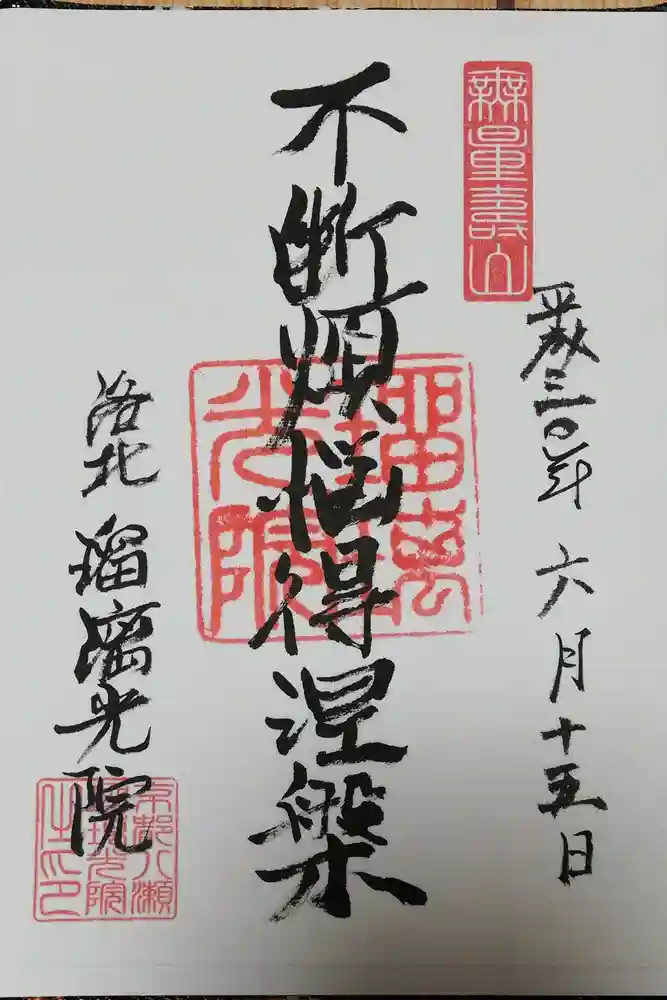 無量壽山
平成三〇年 六月十五日
不断煩悩得涅槃
瑠璃
光院
洛北 瑠璃光院
京都八瀬
光院